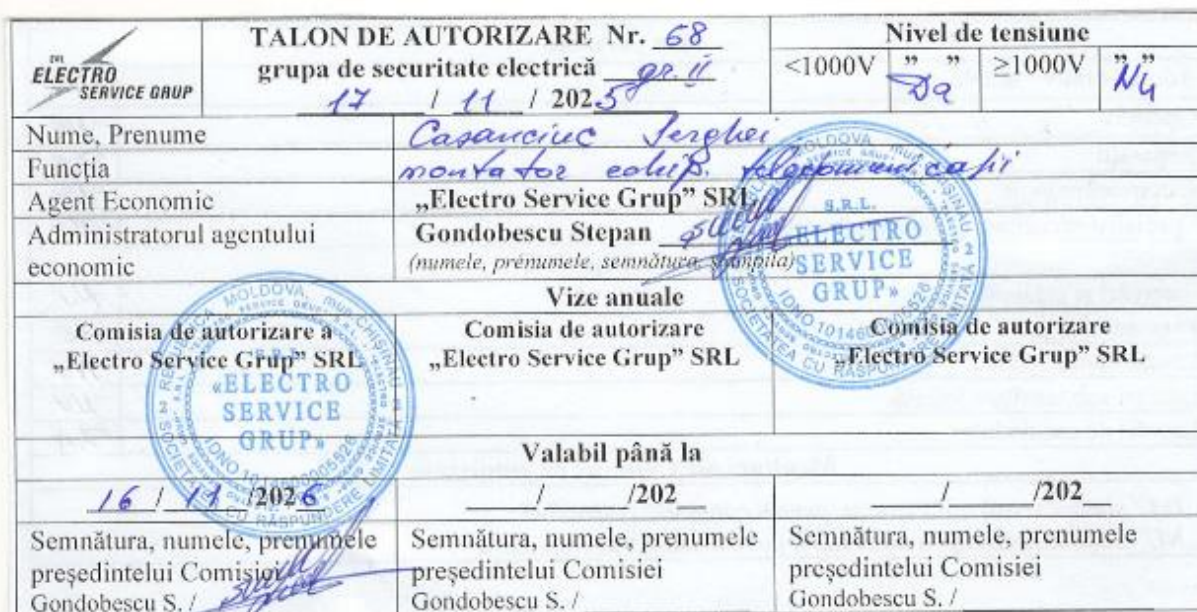 SRL ELECTRO SERVICE GRUP
TALON DE AUTORIZARE Nr. 68
grupa de securitate electrică gr. II
17 / 11 / 2025
Nivel de tensiune
<1000V „ ” Da ≥1000V „ ” Nu
Nume, Prenume Casanciuc Serghei
Funcția montator echip. telecomunicații
Agent Economic „Electro Service Grup” SRL
Administratorul agentului economic Gondobescu Stepan
(numele, prenumele, semnătura, ștampila)
S.R.L.
«ELECTRO
SERVICE
GRUP»
Vize anuale
Comisia de autorizare a
„Electro Service Grup” SRL
Comisia de autorizare
„Electro Service Grup” SRL
Comisia de autorizare
„Electro Service Grup” SRL
S.R.L.
«ELECTRO
SERVICE
GRUP»
Valabil până la
16 / 11 /2026
/ /202
/ /202
Semnătura, numele, prenumele
președintelui Comisiei
Gondobescu S. /
Semnătura, numele, prenumele
președintelui Comisiei
Gondobescu S. /
Semnătura, numele, prenumele
președintelui Comisiei
Gondobescu S. /